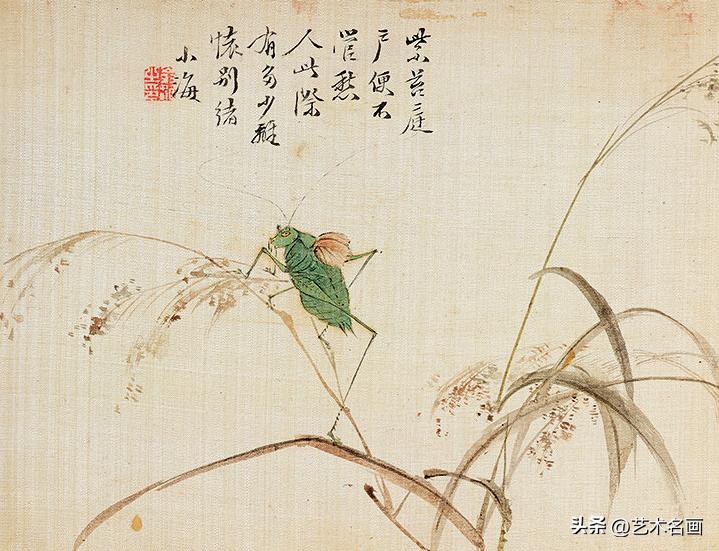 紫苔庭
户便不
管愁
人此際
有多少離
懷別緒
小海
头条 @艺术名画